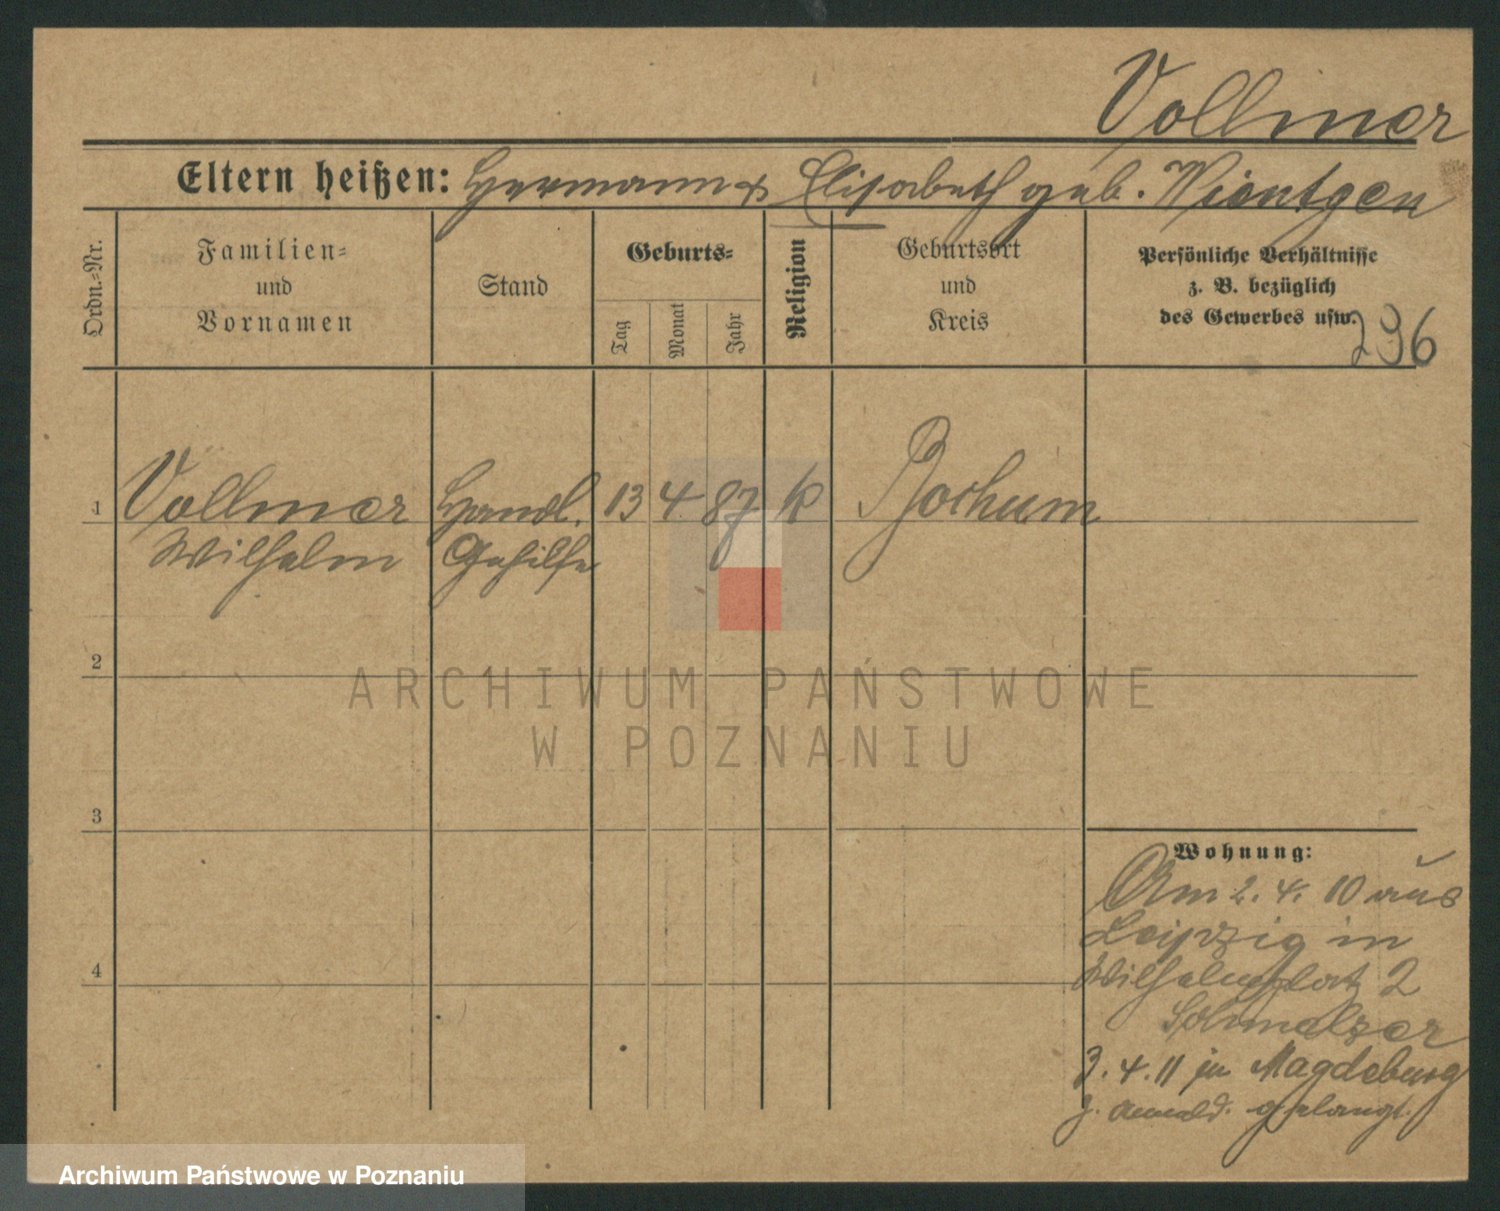 Vollmer
Eltern heißen: Hermann & Elisabeth geb. Wientgen
Ordn.-Nr.
Familien-
und
Vornamen
Stand
Geburts-
Tag
Monat
Jahr
Religion
Geburtsort
und
Kreis
Persönliche Verhältnisse
z. B. bezüglich
des Gewerbes usw.
296
1 Vollmer Handl. 13 4 87 k Bochum
Wilhelm Gehilfe
2
3
4
Wohnung:
Am 2. 4. 10 aus
Leipzig in
Wilhelmsplatz 2
Schmelzer
3. 4. 11 in Magdeburg
z. Anmeld. gelangt.
ARCHIWUM PAŃSTWOWE
W POZNANIU
Archiwum Państwowe w Poznaniu